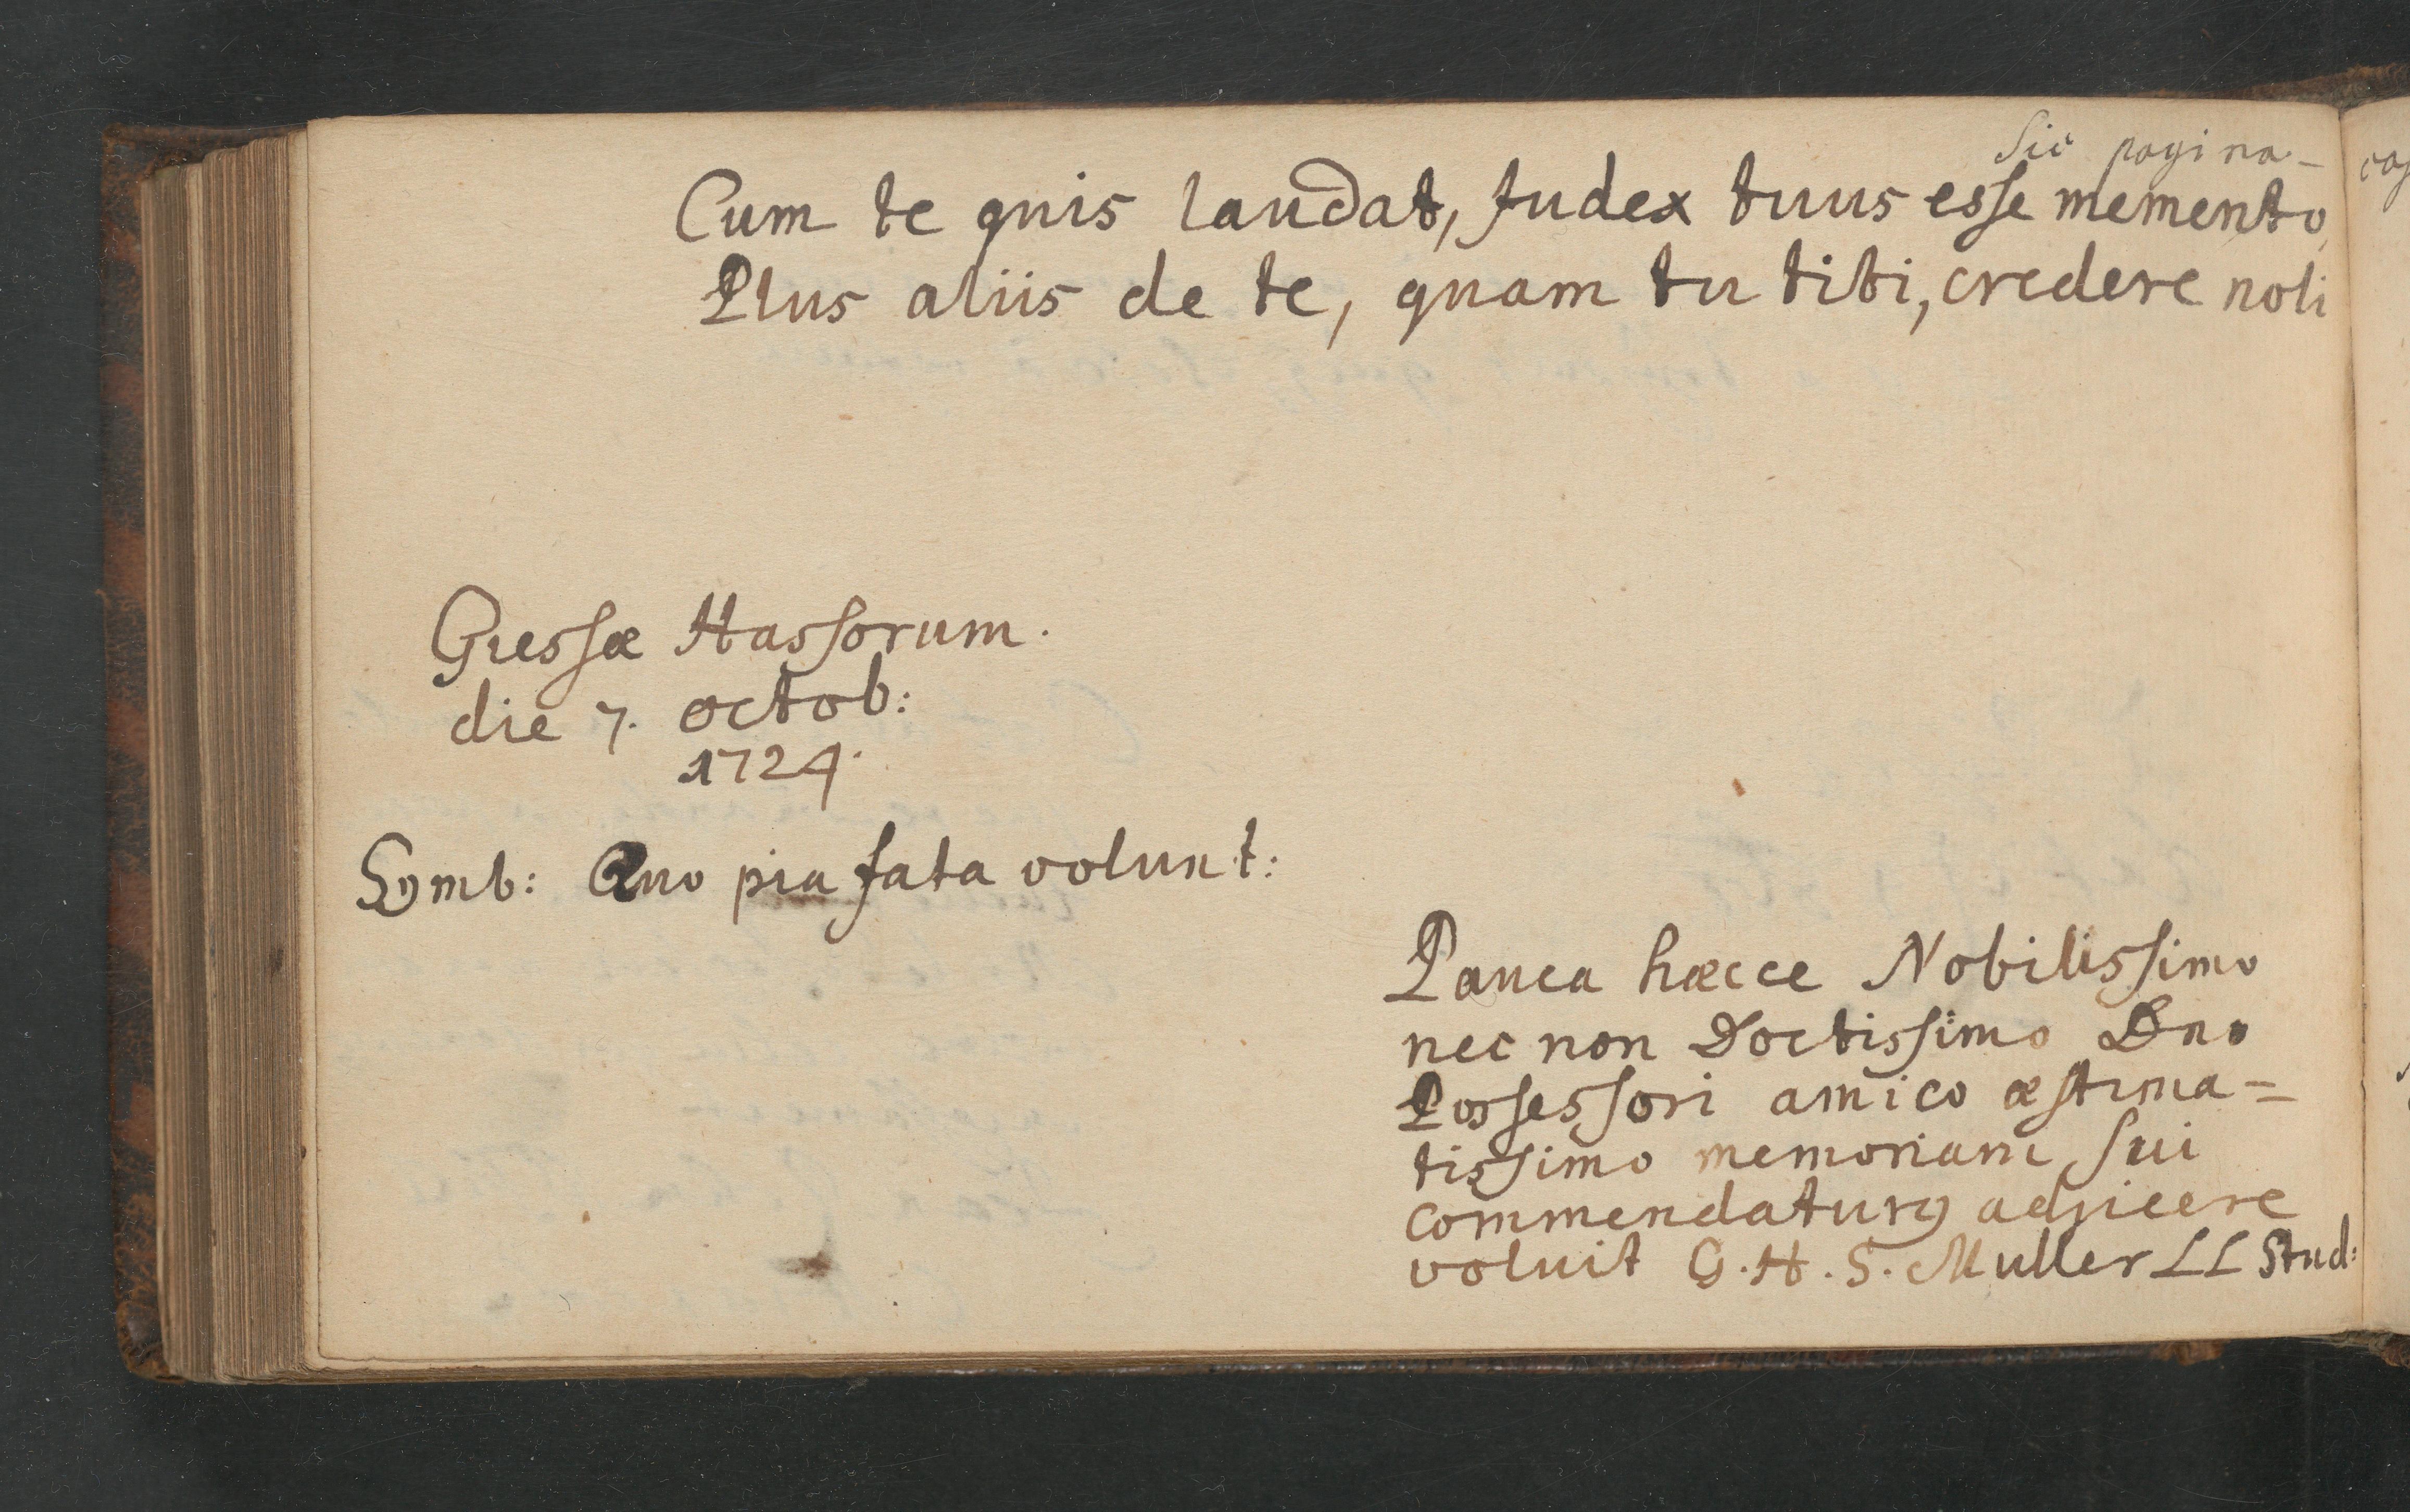 Sic pagina-
Cum te quis laudat, Judex tuus eſse memento,
Plus aliis de te, quam tu tibi, credere noli
Giesſæ Hasſorum.
die 7. octob:
1724.
Symb: Quo pia fata volunt:
Pauca hæcce Nobilisſimo
nec non Doctisſimo Dno
Posſesſori amico æſtima=
tisſimo memoriam ſui
commendaturꝰ adjicere
voluit G. H. S. Muller LL Stud: